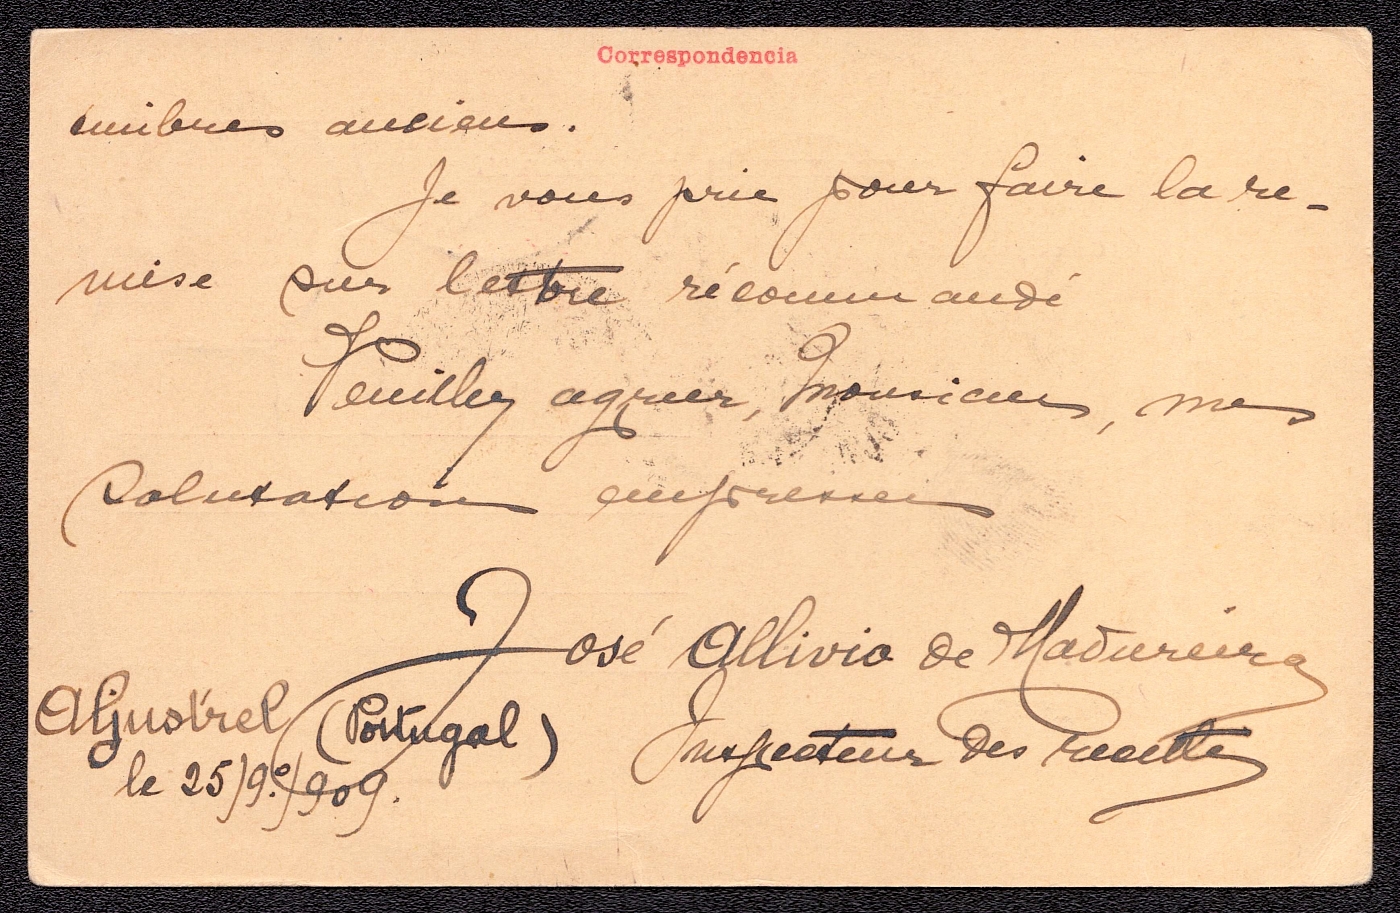 Correspondencia
timbres anciens.
Je vous prie pour faire la re-
mise sur lettre récommandé
Veuillez agreer, Monsieur, mes
salutation empresses
José Allivio de Madureira
Aljustrel (Portugal)
Inspecteur des recettes
le 25/9º/909.